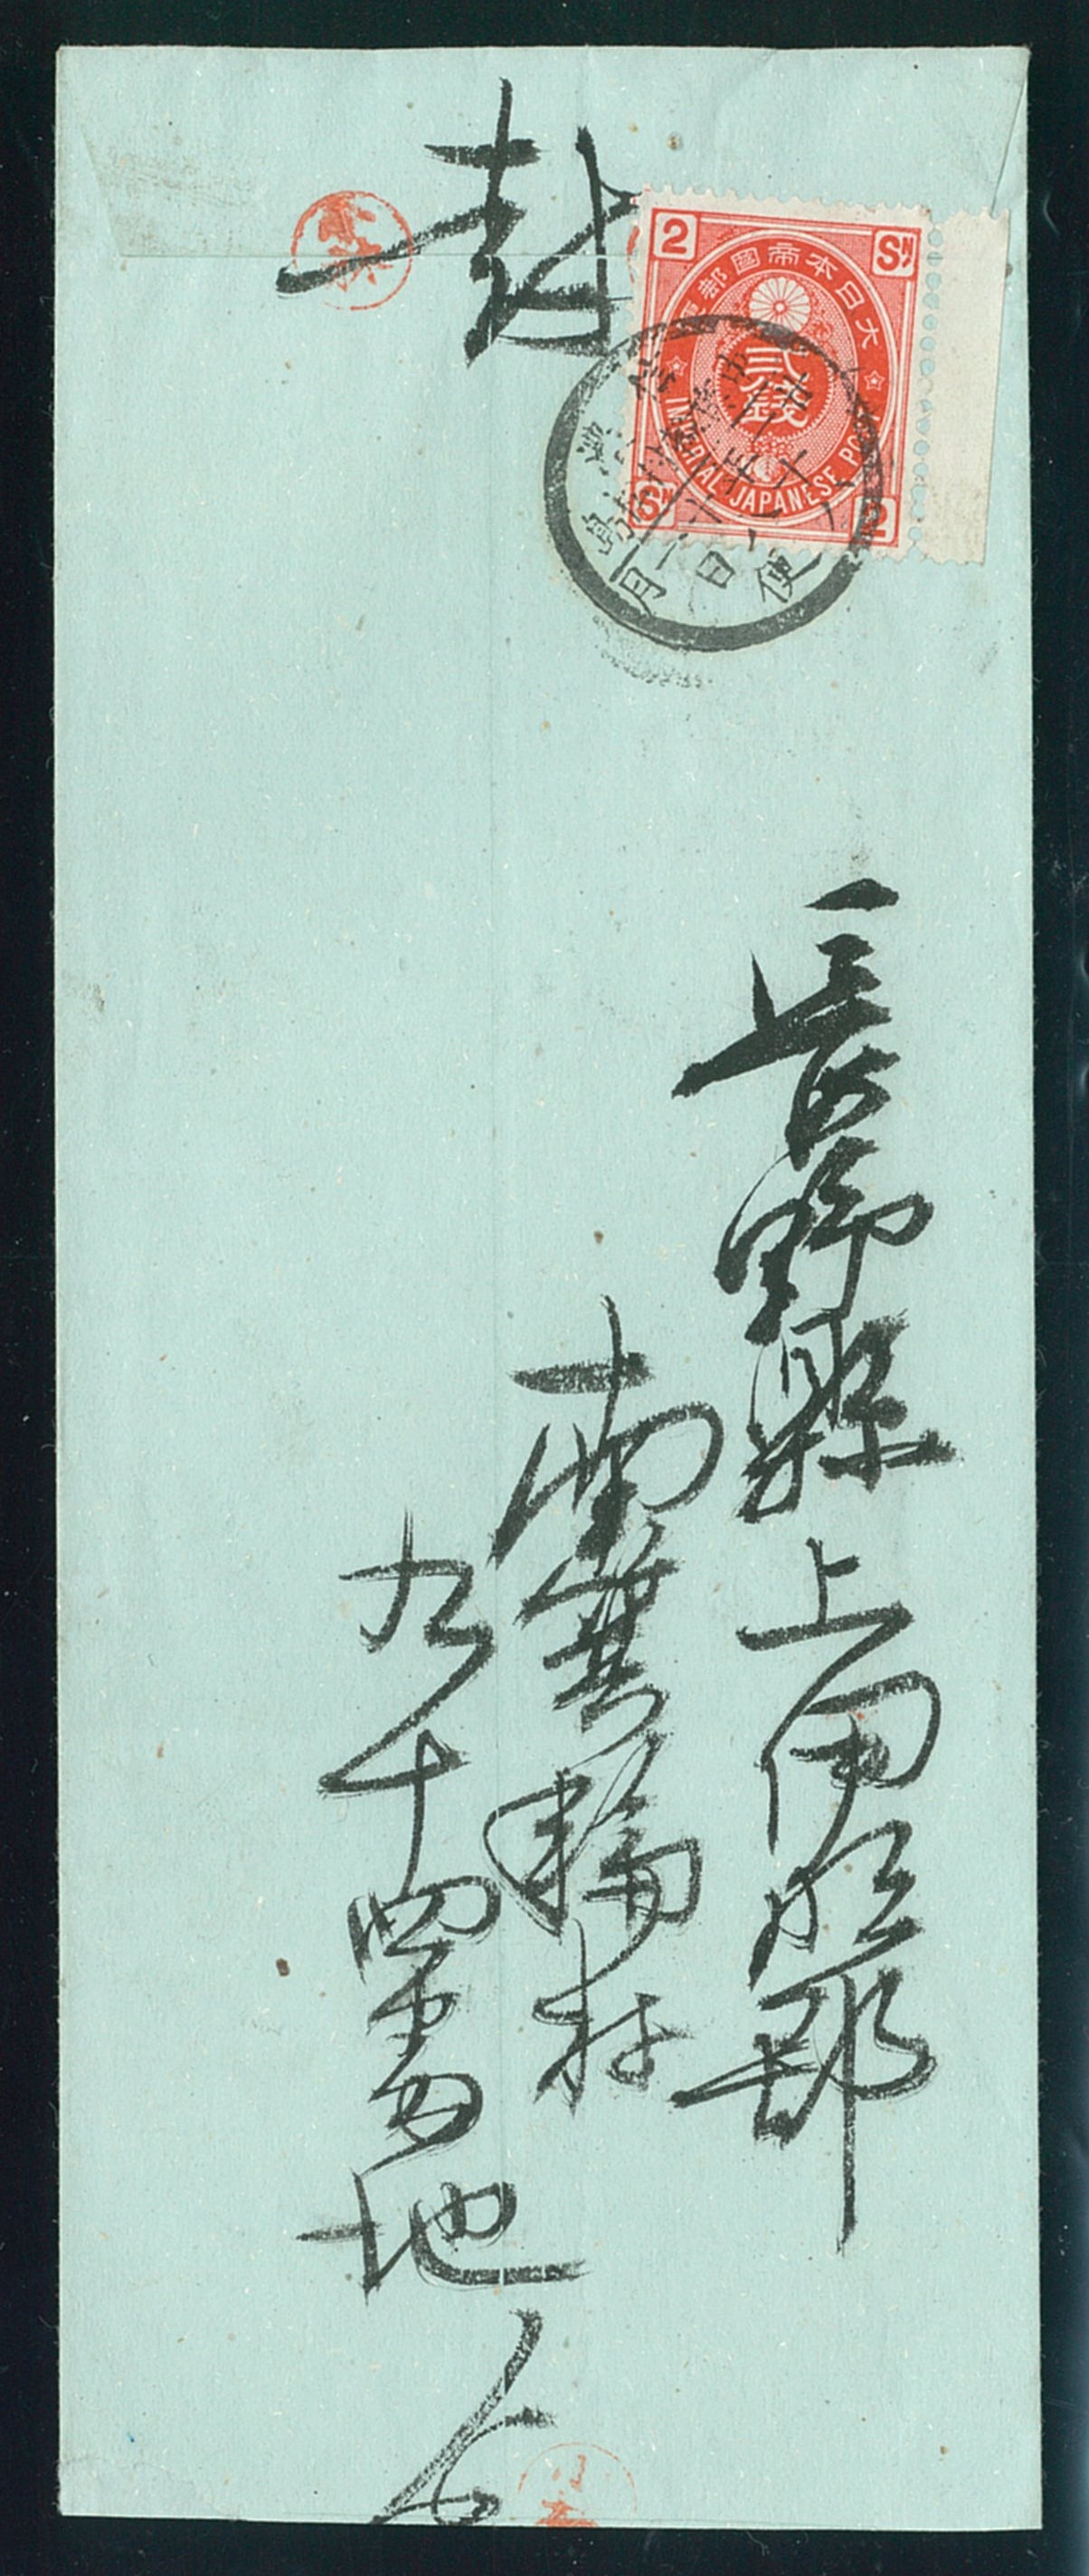 封
2
SN
大日本帝國郵
貳錢
IMPERIAL JAPANESE POST
SN
2
月
日
便
長野縣上伊那郡
南箕輪村
九十四番地